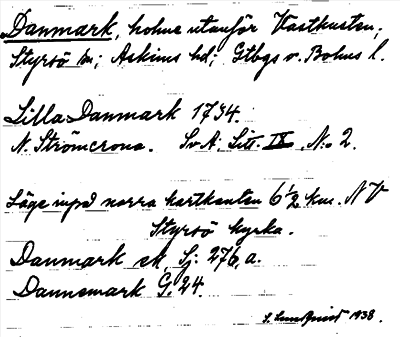 Danmark, holme utanför Västkusten;
Styrsö sn; Askims hd; Gtbgs o. Bohus l.
Lilla Danmark 1734.
N. Strömcrona. SvA: Litt. IX, No 2.
Läge invid norra kartkanten 6 1/2 km. NV
Styrsö kyrka.
Danmark ek, Sj: 276, a.
Dannemark G. 24.
S. Lundquist 1938.